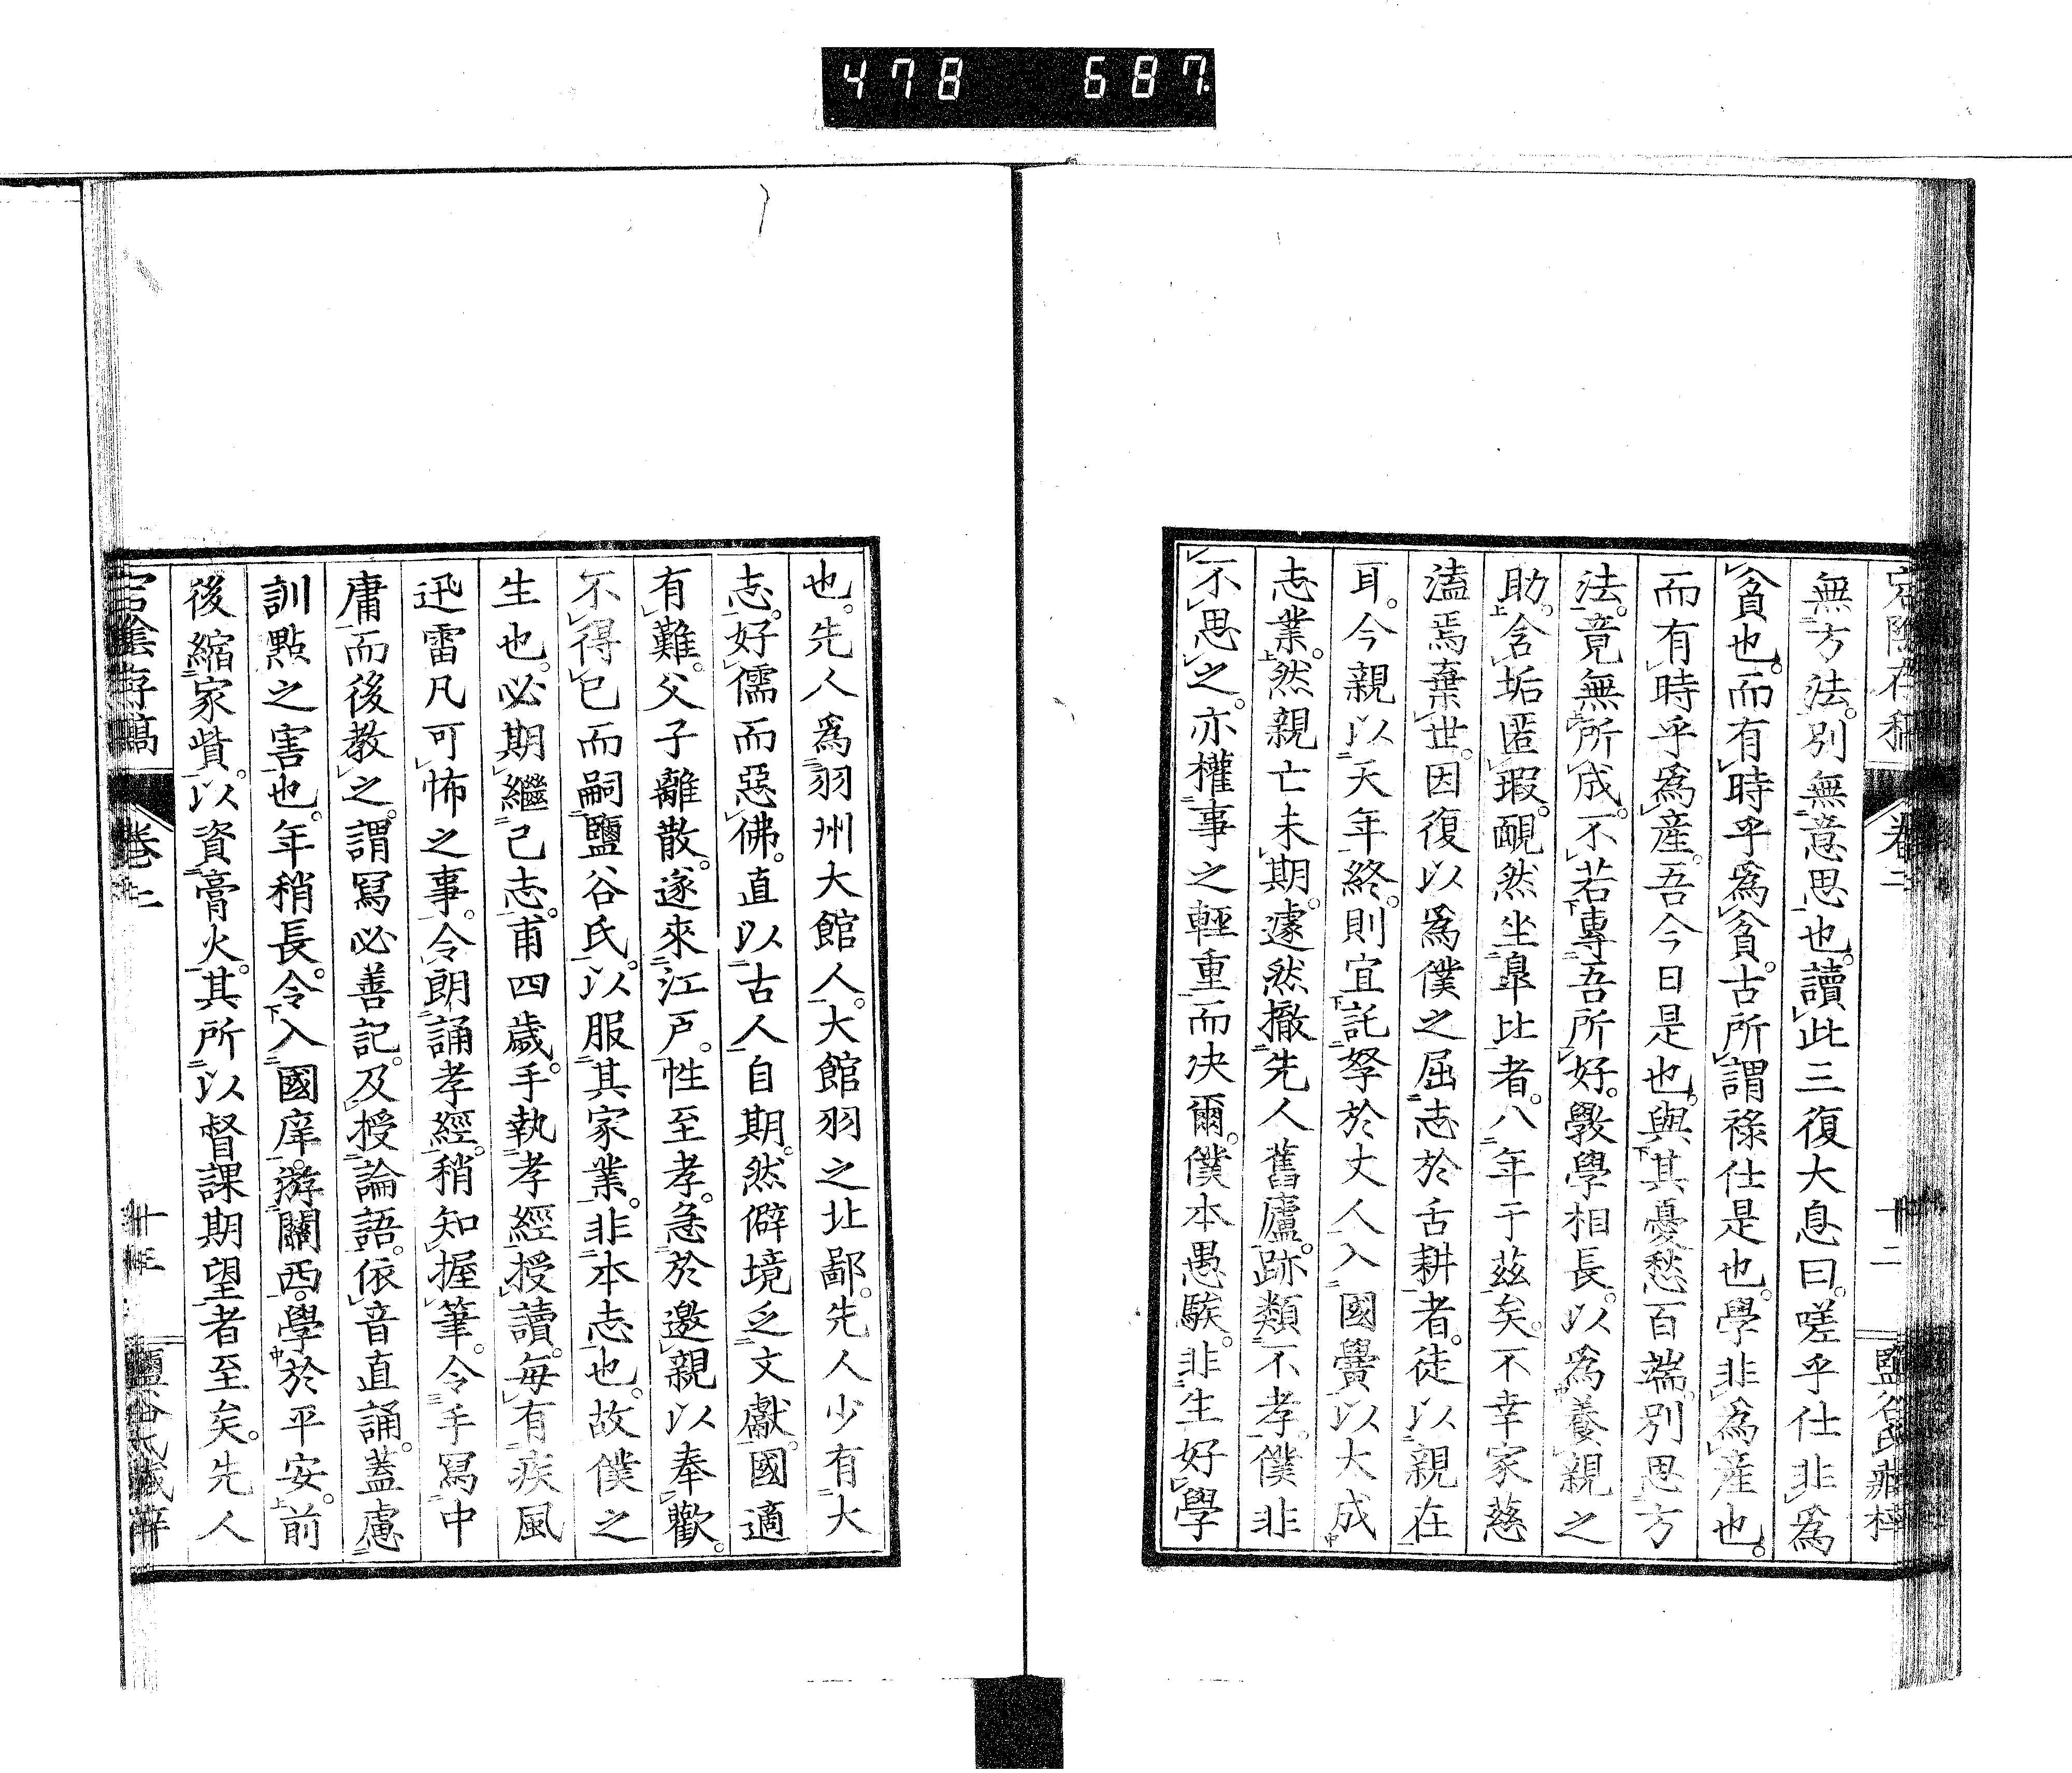 478 687
宕陰存稿 卷二 十二 鹽谷氏藏梓
無方法。別無意思也。讀此三復大息曰。嗟乎仕非爲
貧也。而有時乎爲貧。古所謂祿仕是也。學非爲產也。
而有時乎爲產。吾今日是也。與其憂愁百端。別思方
法。竟無所成。不若專吾所好。斅學相長。以爲養親之
助。含垢匿瑕。靦然坐皐比者。八年于茲矣。不幸家慈
溘焉棄世。因復以爲僕之屈志於舌耕者。徒以親在
耳。今親以天年終。則宜託孥於丈人入國黌以大成
志業。然親亡未期。遽然撤先人舊廬。跡類不孝。僕非
不思之。亦權事之輕重而决爾。僕本愚騃。非生好學
也。先人爲羽州大館人。大館羽之北鄙。先人少有大
志。好儒而惡佛。直以古人自期。然僻境乏文獻。國適
有難。父子離散。遂來江戶。性至孝。急於邀親以奉歡。
不得已而嗣鹽谷氏。以服其家業。非本志也。故僕之
生也。必期繼己志。甫四歲。手執孝經授讀。每有疾風
迅雷凡可怖之事。令朗誦孝經。稍知握筆。令手寫中
庸而後教之。謂寫必善記。及授論語。依音直誦。蓋慮
訓點之害也。年稍長。令入國庠。游關西。學於平安。前
後縮家貲。以資膏火。其所以督課期望者至矣。先人
宕陰存稿 卷二 十三 鹽谷氏藏梓